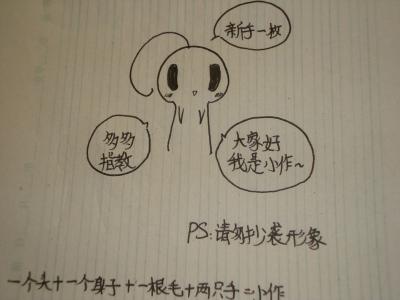 新手一枚
多多
指教
大家好
我是小作~
PS:请勿抄袭形象
一个头+一个身子+一根毛+两只手=小作